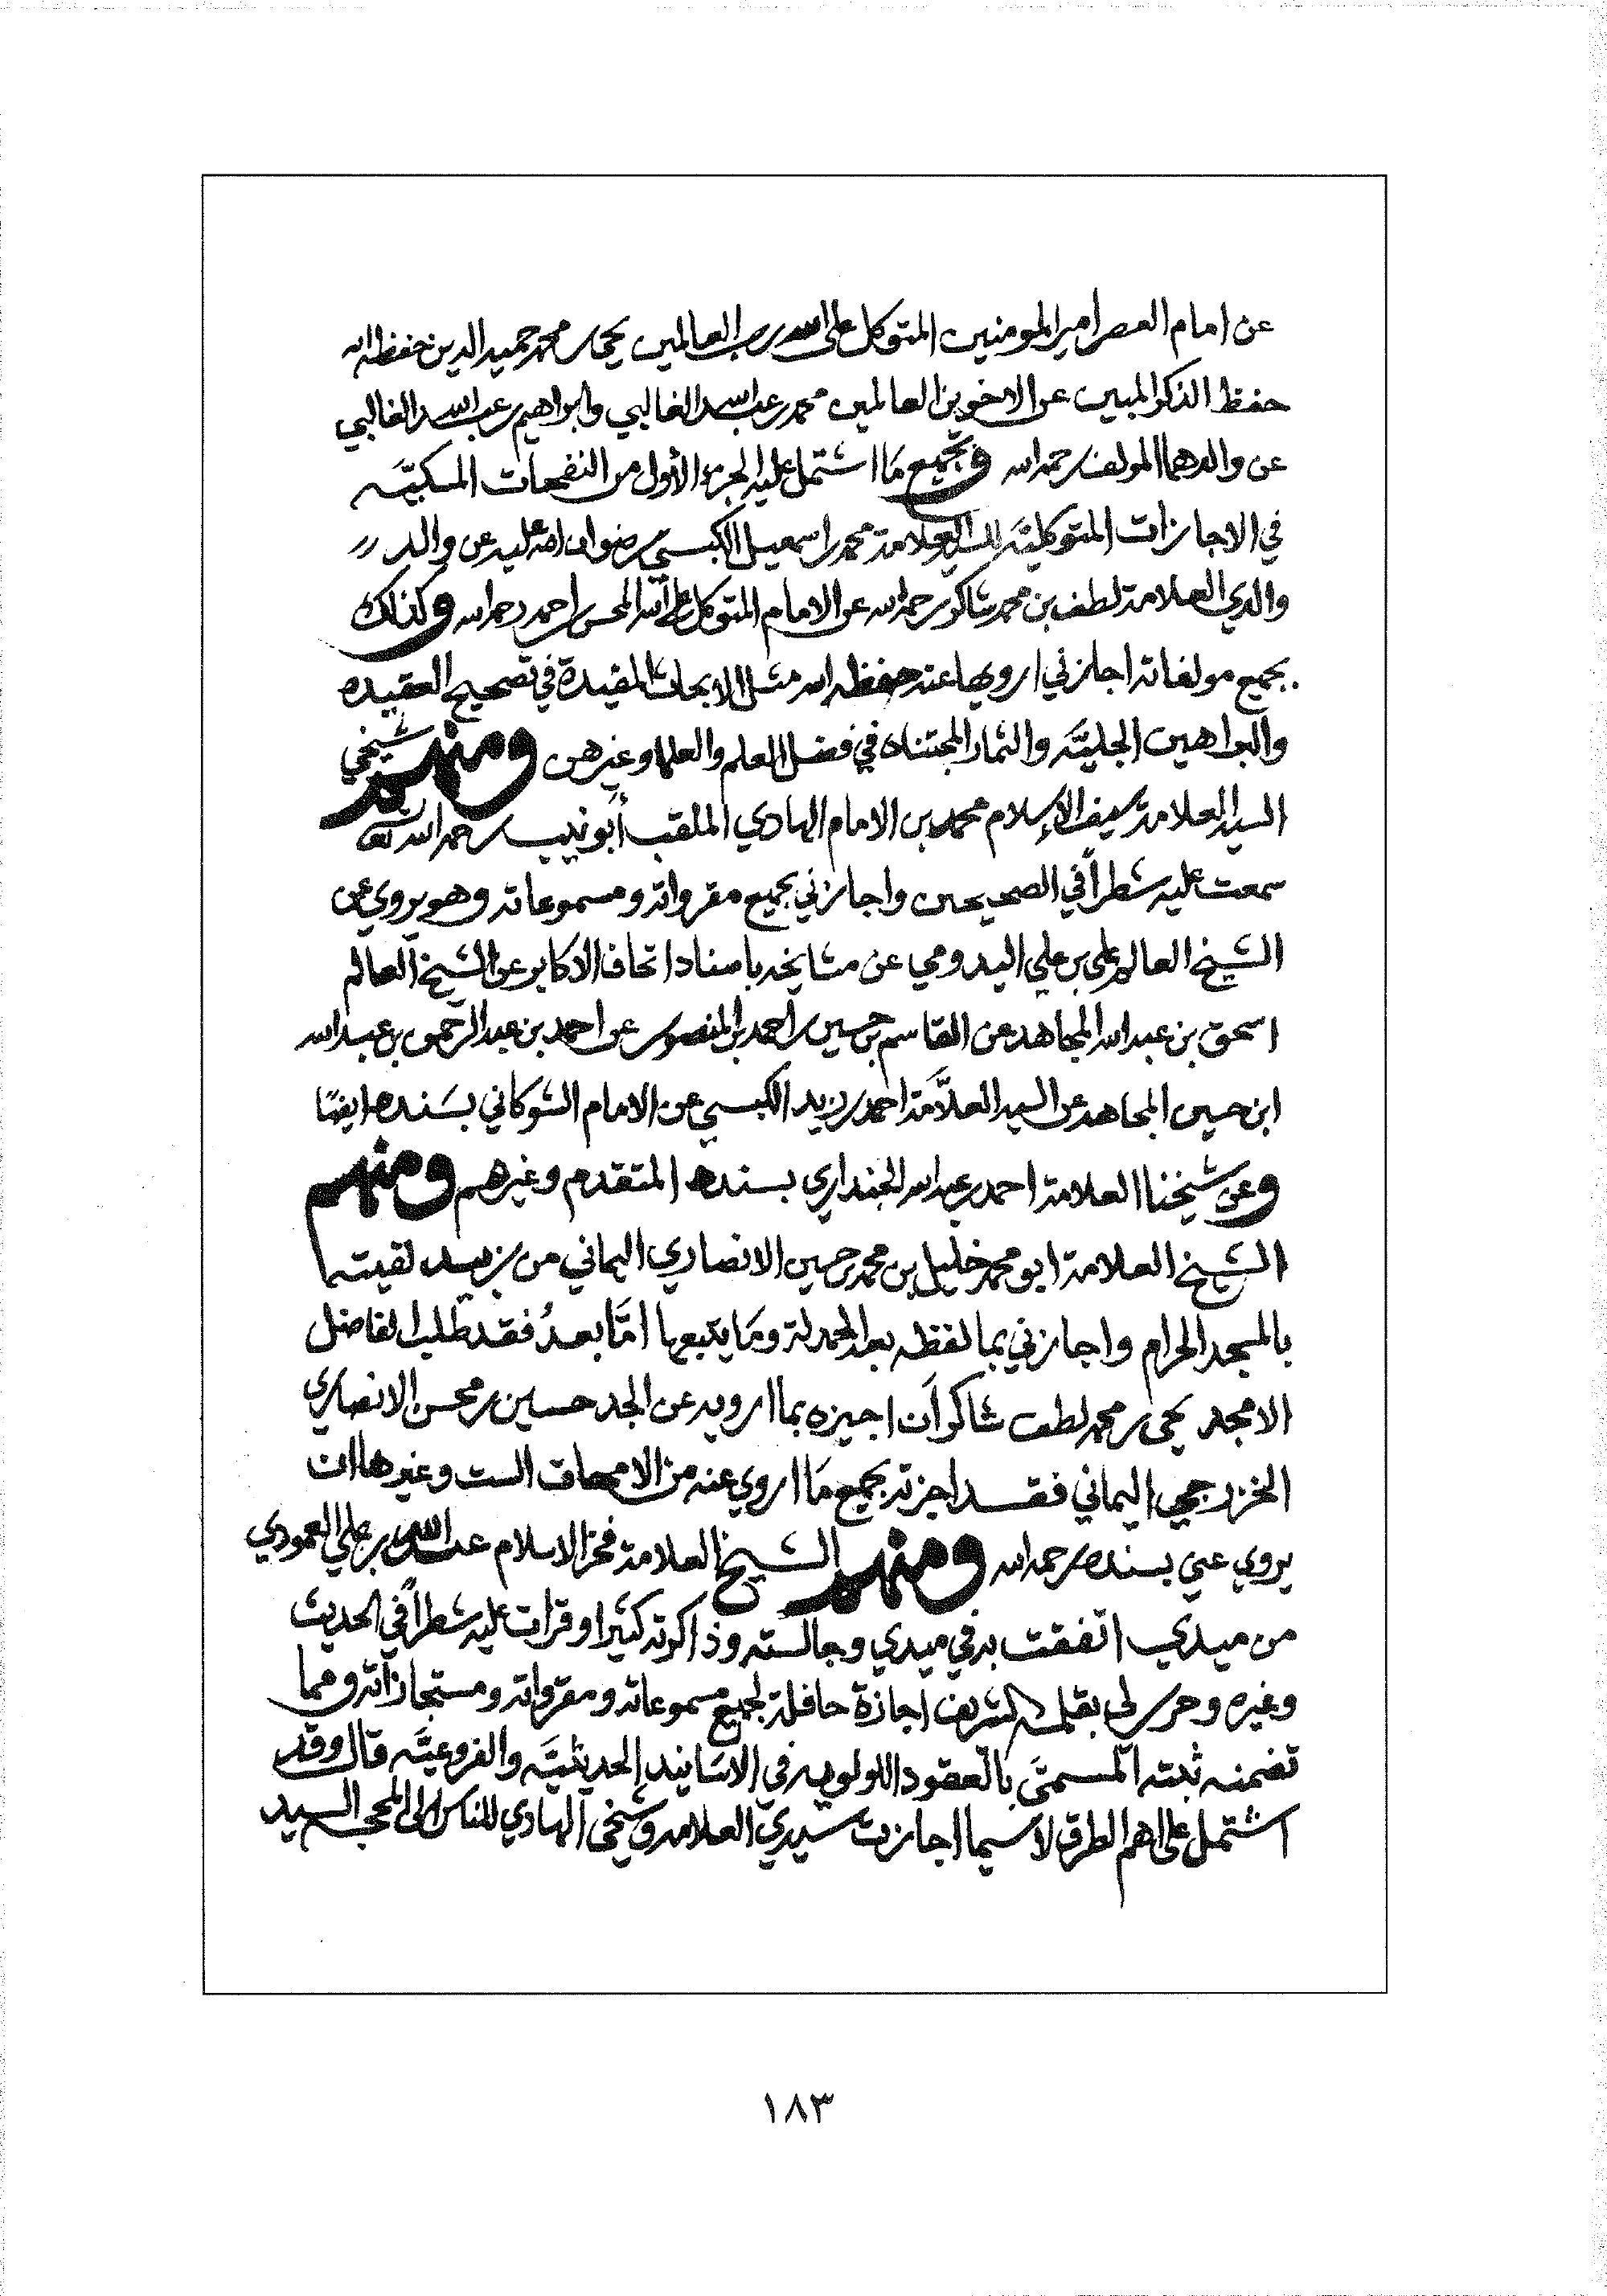 عن امام العصر امير المومنين المتوكل على الله رب العالمين يحيى بن محمد حميد الدين حفظه الله
حفظ الذكر المبين عن الاخوين العالمين محمد بن عبد الله الغالبي وابراهيم بن عبد الله الغالبي
عن والدهما المولف رحمه الله وبجميع مَا اشتمل عليه الجزء الأول من النفحات المسكيَّه
في الاجازات المتوكليَّه للسيد العلامة محمد بن اسمعيل الكبسي رضوان الله عليه عن والد
والدي العلامة لطف بن محمد شاكر رحمه الله عن الامام المتوكل على الله المحسن بن احمد رحمه الله وكذلك
بجميع مولفاته اجازني ارويها عنه حفظه الله مثل الابحاث المفيدة في تصحيح العقيده
والبراهين الجليَّه والثمار المجتناه في فضل العلم والعلما وغيرهن ومنهم شيخي
السيد العلامة سيف الإسلام محمد بن الامام الهادي الملقب أبو نيب رحمه الله تعالى
سمعت عليه شطراً في الصحيحين واجازني بجميع مقرواته ومسموعاته وهو يروي عن
الشيخ العالم علي بن علي اليدومي عن مشايخه باسناد اتحاف الاكابر عن الشيخ العالم
اسحق بن عبد الله المجاهد عن القاسم بن حسين بن احمد بن المنصور عن احمد بن عبد الرحمن بن عبد الله
ابن حسين المجاهد عن السيد العلاَّمة احمد بن زيد الكبسي عن الامام الشوكاني بسَنده ايضًا
وعن شيخنا العلامة احمد بن عبد الله الجنداري بسنده المتقدم وغيرهم ومنهم
الشيخ العلامة ابو محمد خليل بن محمد بن حسين الانصاري اليماني من زبيد لقيته
بالمسجد الحرام واجازني بما لفظه بعد الحمدلة ومَا يتبعها امَّا بعدُ فقد طلب الفاضل
الامجد يحيى بن محمد لطف شاكر أن اجيزه بما ارويه عن الجد حسين بن محسن الانصاري
الخزرجي اليماني فقد اجزته بجميع مَا اروي عنه من الامهات الست وغيرها ان
يروي عني بسنده رحمه الله ومنهم الشيخ العلامة فخر الاسلام عبد الله بن علي العمودي
من ميدي اتفقت به في ميدي وجالسته وذاكرته كثيرا وقرات عليه شطراً في الحديث
وغيره وحرر لي بقلمه الشريف اجازة حافلة بجميع مسموعاته ومقرواته ومستجازاته ومما
تضمنه ثبته المسمَّى بالعقود اللولويه في الاسَانيد الحديثيَّه والفروعيَّه قال وقد
اشتمل على اهم الطرق لاسيما اجازت سيدي العلامه وشيخي الهادي للناس الى المحجه السيد
١٨٣